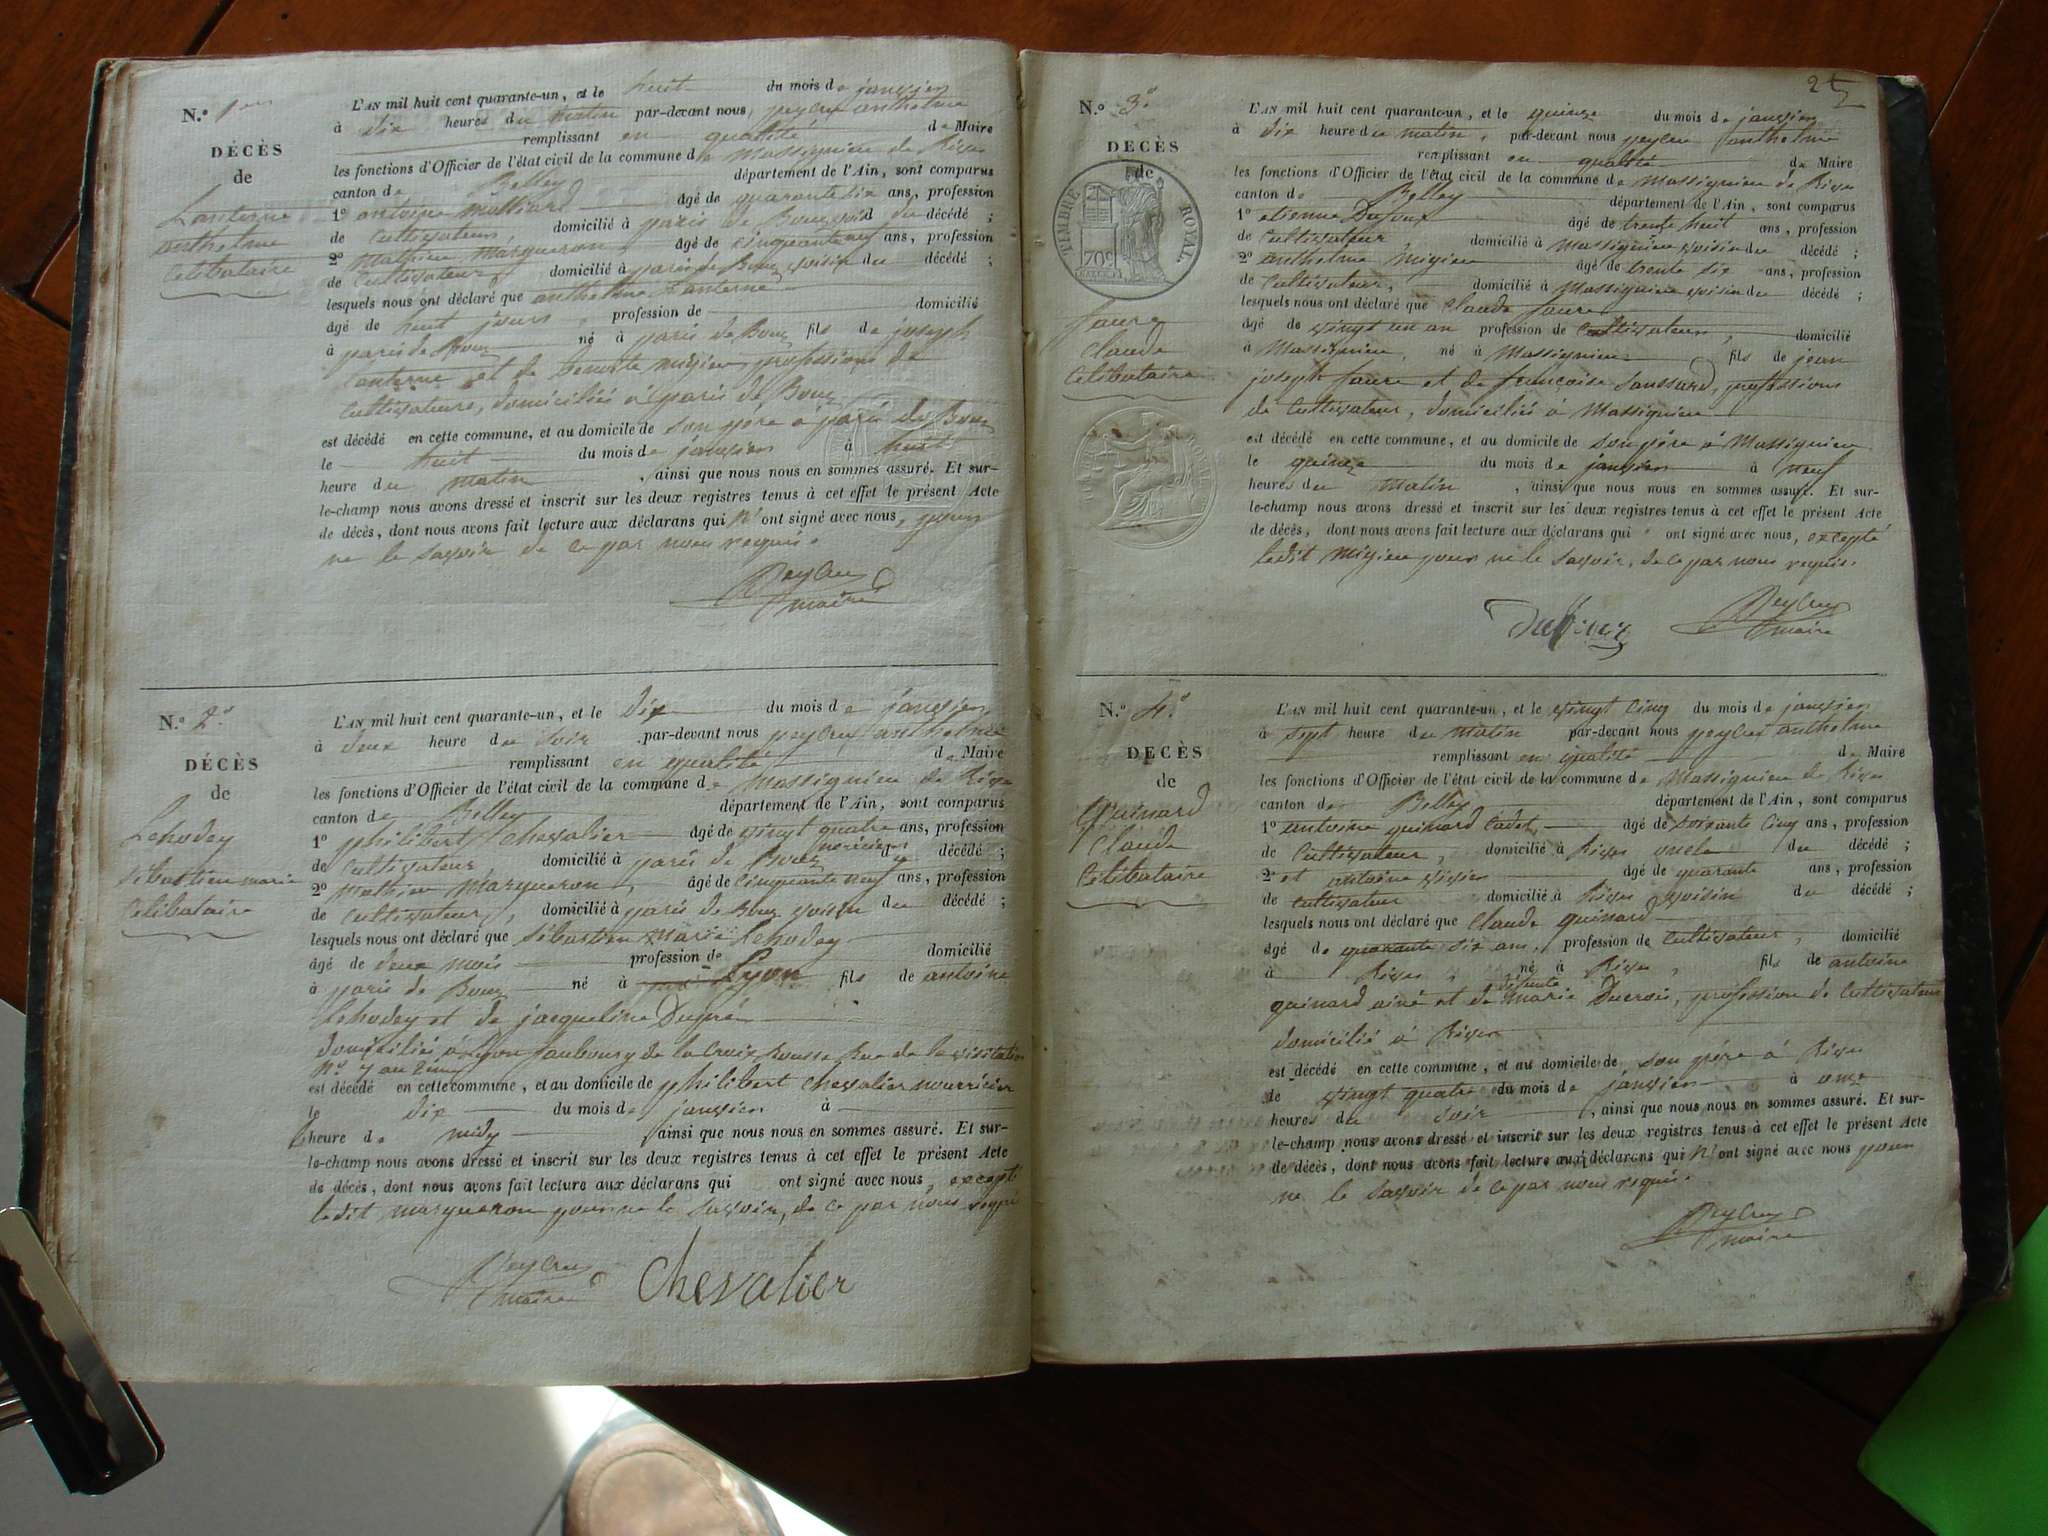 N.º 1er
DÉCÈS
de
Lanterne
anthelme
Célibataire
L'AN mil huit cent quarante-un, et le huit du mois de janvier
à dix heures du matin par-devant nous, peycru anthelme
remplissant en qualité de Maire
les fonctions d'Officier de l'état civil de la commune de Massignieu de Rives
canton de Belley département de l'Ain, sont comparus
1º antoine Molliard âgé de quarante six ans, profession
de Cultivateur domicilié à paris de Bouz voisin du décédé ;
2º Mathieu Margueron âgé de cinquante neuf ans, profession
de Cultivateur domicilié à paris de Bouz voisin du décédé ;
lesquels nous ont déclaré que anthelme Lanterne
âgé de huit jours, profession de domicilié
à paris de Bouz né à paris de Bouz fils de joseph
Lanterne et de benoite migieu, professions de
Cultivateurs, domiciliés à paris de Bouz
est décédé en cette commune, et au domicile de son père à paris de Bouz
le huit du mois de janvier à huit
heure du matin, ainsi que nous nous en sommes assuré. Et sur-
le-champ nous avons dressé et inscrit sur les deux registres tenus à cet effet le présent Acte
de décès, dont nous avons fait lecture aux déclarans qui n'ont signé avec nous, pour
ne le savoir de ce par nous requis.
Peycru
maire
N.º 2º
DÉCÈS
de
Lehodey
sébastien marie
Célibataire
L'AN mil huit cent quarante-un, et le dix du mois de janvier
à deux heure du soir par-devant nous peycru anthelme
remplissant en qualité de Maire
les fonctions d'Officier de l'état civil de la commune de Massignieu de Rives
canton de Belley département de l'Ain, sont comparus
1º philibert Chevalier âgé de vingt quatre ans, profession
de Cultivateur domicilié à paris de Bouz nourricier du décédé ;
2º Mathieu Margueron, âgé de cinquante neuf ans, profession
de Cultivateur, domicilié à paris de Bouz voisin du décédé ;
lesquels nous ont déclaré que Sébastien Marie Lehodey
âgé de deux mois profession de domicilié
à paris de Bouz né à Lyon fils de antoine
Lehodey et de jacqueline Dupré
domiciliés à Lyon faubourg de la Croix Rousse Rue de la visitation
Nº 7 au 2ème
est décédé en cette commune, et au domicile de philibert Chevalier nourricier
le dix du mois de janvier à
heure de midy ainsi que nous nous en sommes assuré. Et sur-
le-champ nous avons dressé et inscrit sur les deux registres tenus à cet effet le présent Acte
de décès, dont nous avons fait lecture aux déclarans qui ont signé avec nous, excepté
ledit Margueron pour ne le savoir, de ce par nous requis
Peycru
maire
Chevalier
N.º 3º
DÉCÈS
de
TIMBRE ROYAL
70c
faure
Claude
Célibataire
L'AN mil huit cent quarante-un, et le quinze du mois de janvier
à dix heure du matin, par-devant nous peycru anthelme
remplissant en qualité de Maire
les fonctions d'Officier de l'état civil de la commune de Massignieu de Rives
canton de Belley département de l'Ain, sont comparus
1º etienne Dufour âgé de trente huit ans, profession
de Cultivateur, domicilié à Massignieu voisin du décédé ;
2º anthelme migieu âgé de trente six ans, profession
de Cultivateur, domicilié à Massignieu voisin du décédé ;
lesquels nous ont déclaré que Claude faure
âgé de vingt un an profession de Cultivateur, domicilié
à Massignieu, né à Massignieu fils de jean
joseph faure et de françoise Sonssard, professions
de Cultivateur, domiciliés à Massignieu
est décédé en cette commune, et au domicile de son père à Massignieu
le quinze du mois de janvier à neuf
heures du matin, ainsi que nous nous en sommes assuré. Et sur-
le-champ nous avons dressé et inscrit sur les deux registres tenus à cet effet le présent Acte
de décès, dont nous avons fait lecture aux déclarans qui ont signé avec nous, excepté
ledit Migieu pour ne le savoir, de ce par nous requis.
Peycru
maire
N.º 4º
DÉCÈS
de
Quinard
Claude
Célibataire
L'AN mil huit cent quarante-un, et le vingt cinq du mois de janvier
à sept heure du matin par-devant nous peycru anthelme
remplissant en qualité de Maire
les fonctions d'Officier de l'état civil de la commune de Massignieu de Rives
canton de Belley département de l'Ain, sont comparus
1º antoine quinard Cadet, âgé de soixante cinq ans, profession
de Cultivateur, domicilié à Rives oncle du décédé ;
2º et antoine vivier âgé de quarante ans, profession
de cultivateur domicilié à Rives voisin du décédé ;
lesquels nous ont déclaré que Claude quinard
âgé de quarante six ans, profession de Cultivateur, domicilié
à Rives, né à Rives, fils de antoine
quinard ainé et de défunte marie Ducrois, profession de Cultivateur
domicilié à Rives
est décédé en cette commune, et au domicile de son père à Rives
le vingt quatre du mois de janvier à onze
heures du soir, ainsi que nous nous en sommes assuré. Et sur-
le-champ nous avons dressé et inscrit sur les deux registres tenus à cet effet le présent Acte
de décès, dont nous avons fait lecture aux déclarans qui n'ont signé avec nous pour
ne le savoir de ce par nous requis.
Peycru
maire